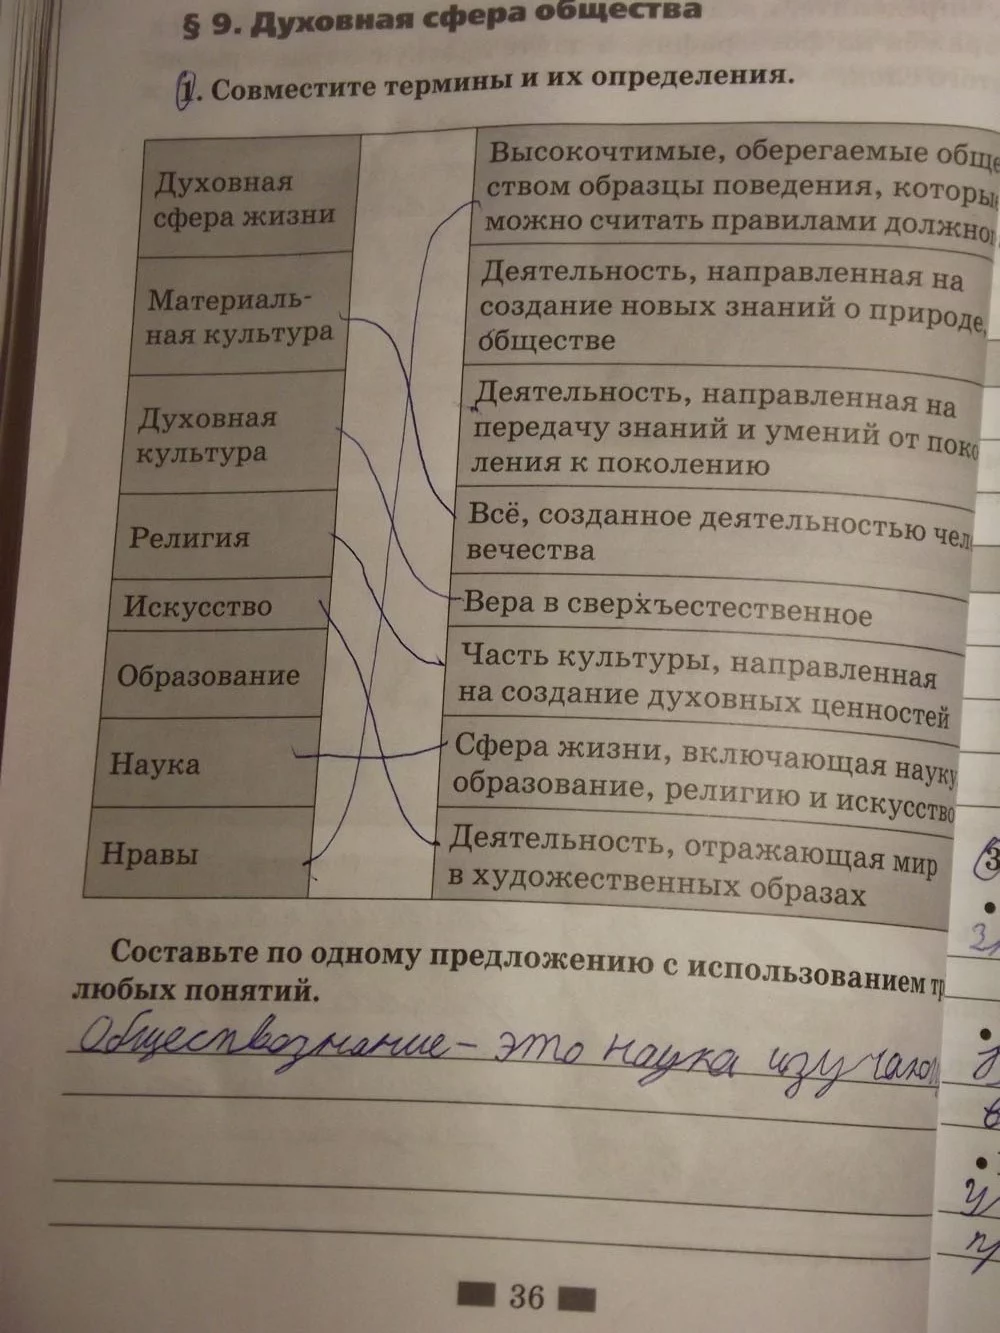 § 9. Духовная сфера общества
1. Совместите термины и их определения.
Духовная
сфера жизни
Высокочтимые, оберегаемые обще
ством образцы поведения, которы
можно считать правилами должно
Материаль-
ная культура
Деятельность, направленная на
создание новых знаний о природе,
обществе
Духовная
культура
Деятельность, направленная на
передачу знаний и умений от поко
ления к поколению
Религия
Всё, созданное деятельностью чел
вечества
Искусство
Вера в сверхъестественное
Образование
Часть культуры, направленная
на создание духовных ценностей
Наука
Сфера жизни, включающая науку
образование, религию и искусство
Нравы
Деятельность, отражающая мир
в художественных образах
Составьте по одному предложению с использованием тр
любых понятий.
Обществознание – это наука изучаю
36
3